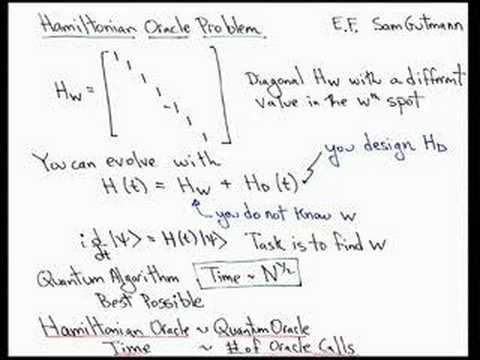 Hamiltonian Oracle Problem E.F. Sam Gutmann
H_W = [ 1 1 1 1 -1 1 1 ] Diagonal H_W with a different
value in the wth spot
You can evolve with
you design H_D
H(t) = H_W + H_D(t)
you do not know w
i d/dt |ψ> = H(t)|ψ> Task is to find w
Quantum Algorithm Time ~ N^1/2
Best Possible
Hamiltonian Oracle ~ Quantum Oracle
Time ~ # of Oracle Calls